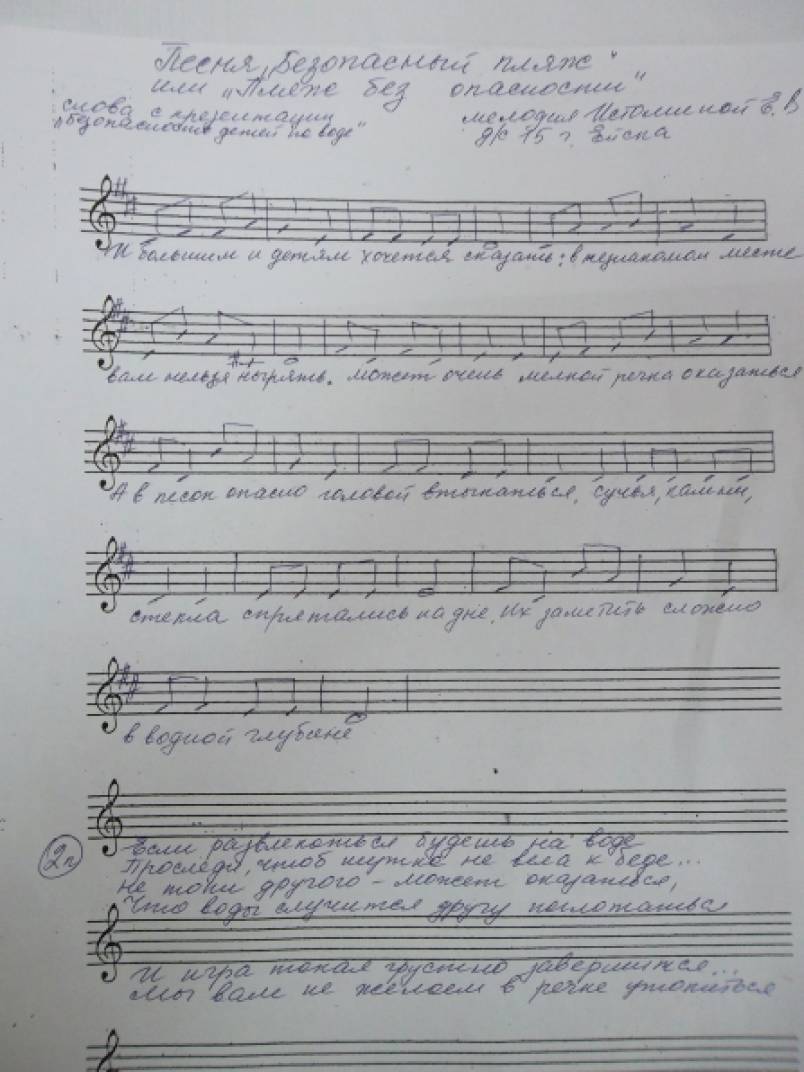 Песня „Безопасный пляж"
или „Пляж без опасности"
слова с презентации
„Безопасность детей на воде"
мелодия Истоминой Е.В
д/с 15 г. Ейска
И большим и детям хочется сказать: в незнакомом месте
вам нельзя нырять. Может очень мелкой речка оказаться
А в песок опасно головой втыкаться, сучья, камни,
стекла спрятались на дне. Их заметить сложно
в водной глубине
2п
Если развлекаться будешь на воде
Проследи, чтоб шутка не вела к беде...
Не топи другого – может оказаться,
Что воды случится другу наглотаться
И игра такая грустно завершится...
Мы вам не желаем в речке утопиться